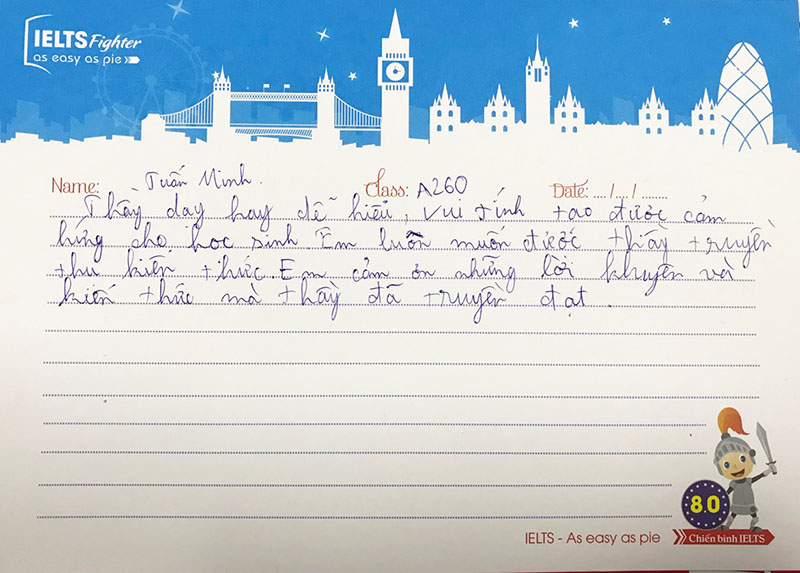 IELTS Fighter
as easy as pie
Name: Tuấn Minh. Class: A260 Date: .../.../......
Thầy dạy hay dễ hiểu, vui tính tạo được cảm
hứng cho học sinh. Em luôn muốn được thầy truyền
thụ kiến thức. Em cảm ơn những lời khuyên và
kiến thức mà thầy đã truyền đạt.
8.0
IELTS - As easy as pie
Chiến binh IELTS